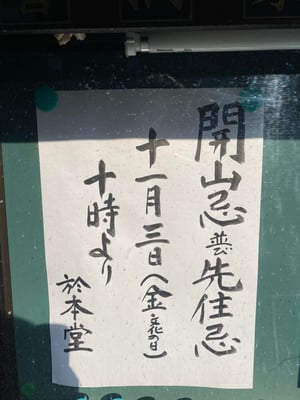 開山忌 先住忌
十一月三日(金・文化の日)
十時より
於本堂